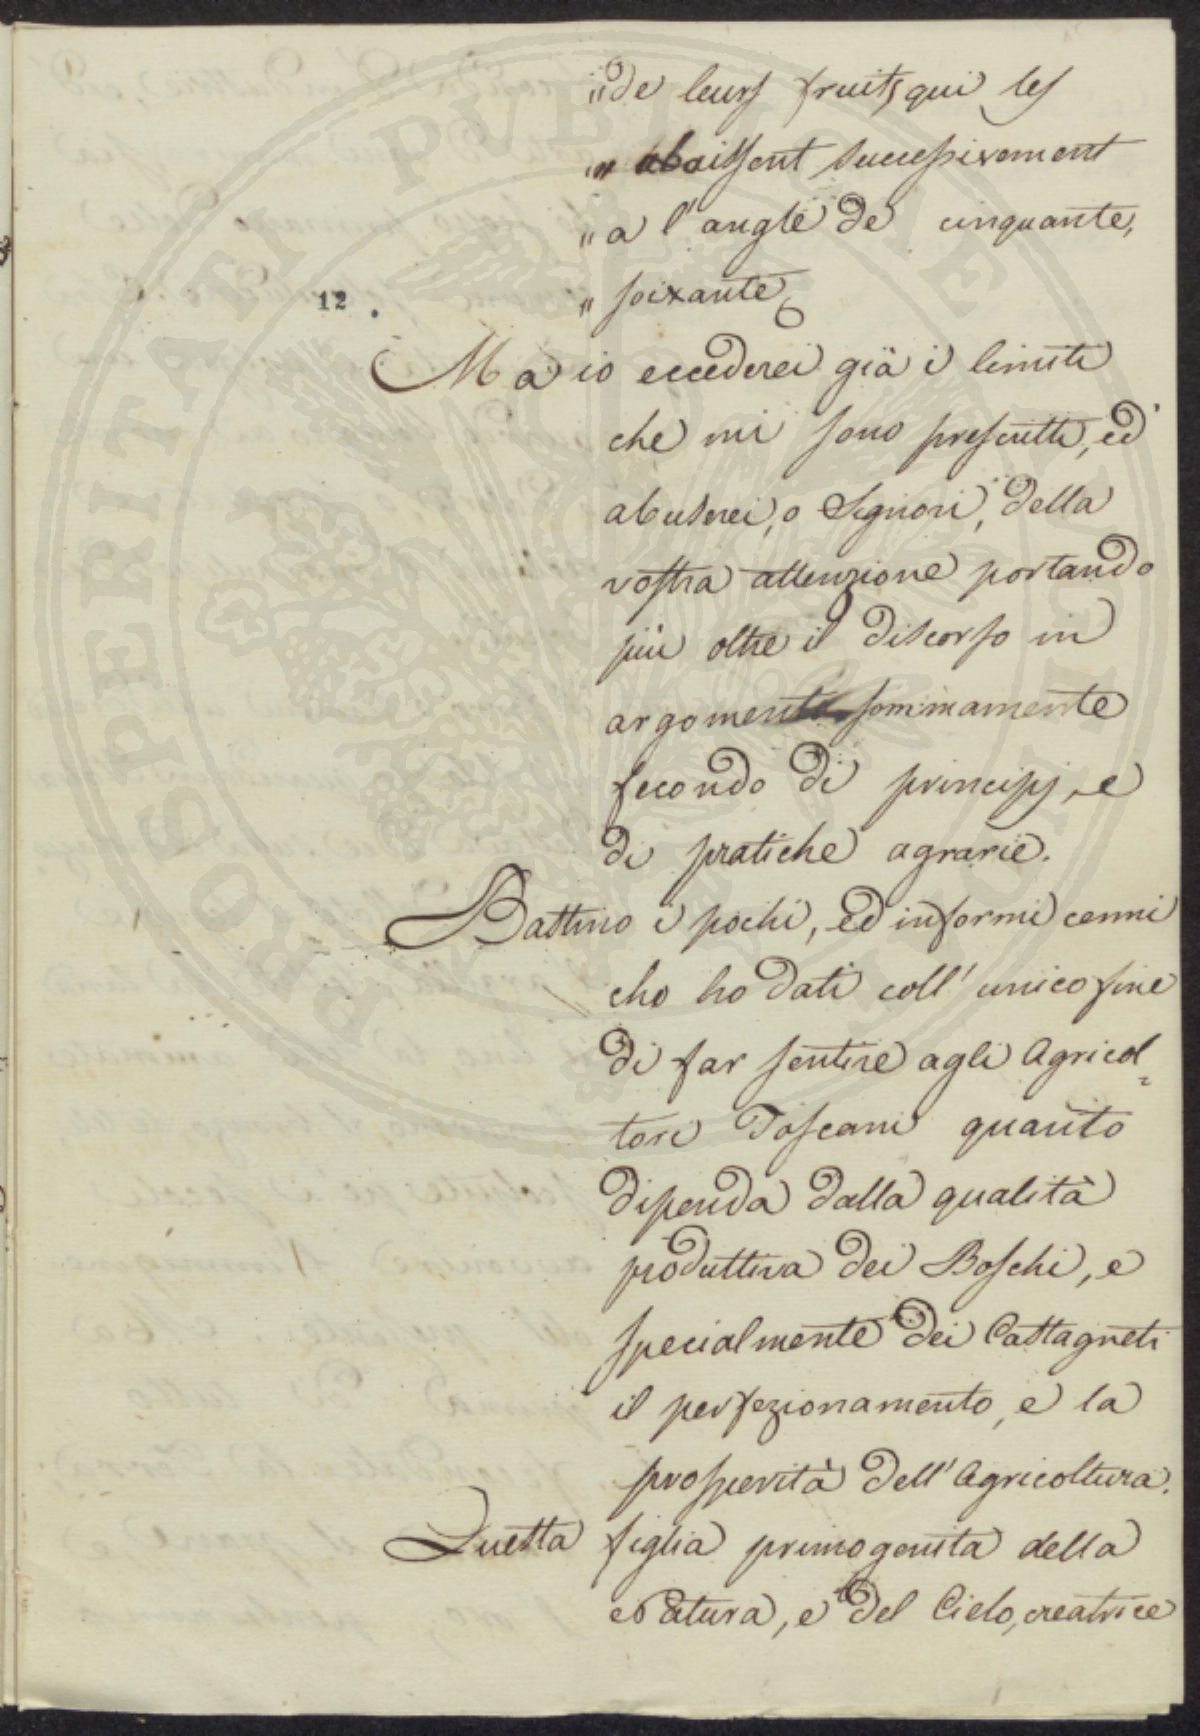 „ de leurs fruits qui les
„ abaissent successivement
„ a l'angle de cinquante,
„ soixante
12.
Ma io eccederei già i limiti
che mi sono prescritti, ed
abuserei, o Signori, della
vostra attenzione portando
più oltre il discorso in
argomento sommamente
fecondo di principj, e
di pratiche agrarie.
Bastino i pochi, ed informi cenni
che ho dati coll' unico fine
di far sentire agli Agricol=
tori Toscani quanto
dipenda dalla qualità
produttiva dei Boschi, e
specialmente dei Castagneti
il perfezionamento, e la
prosperità dell' Agricoltura.
Questa figlia primogenita della
Natura, e del Cielo, creatrice
PROSPERITATI PVBLICAE